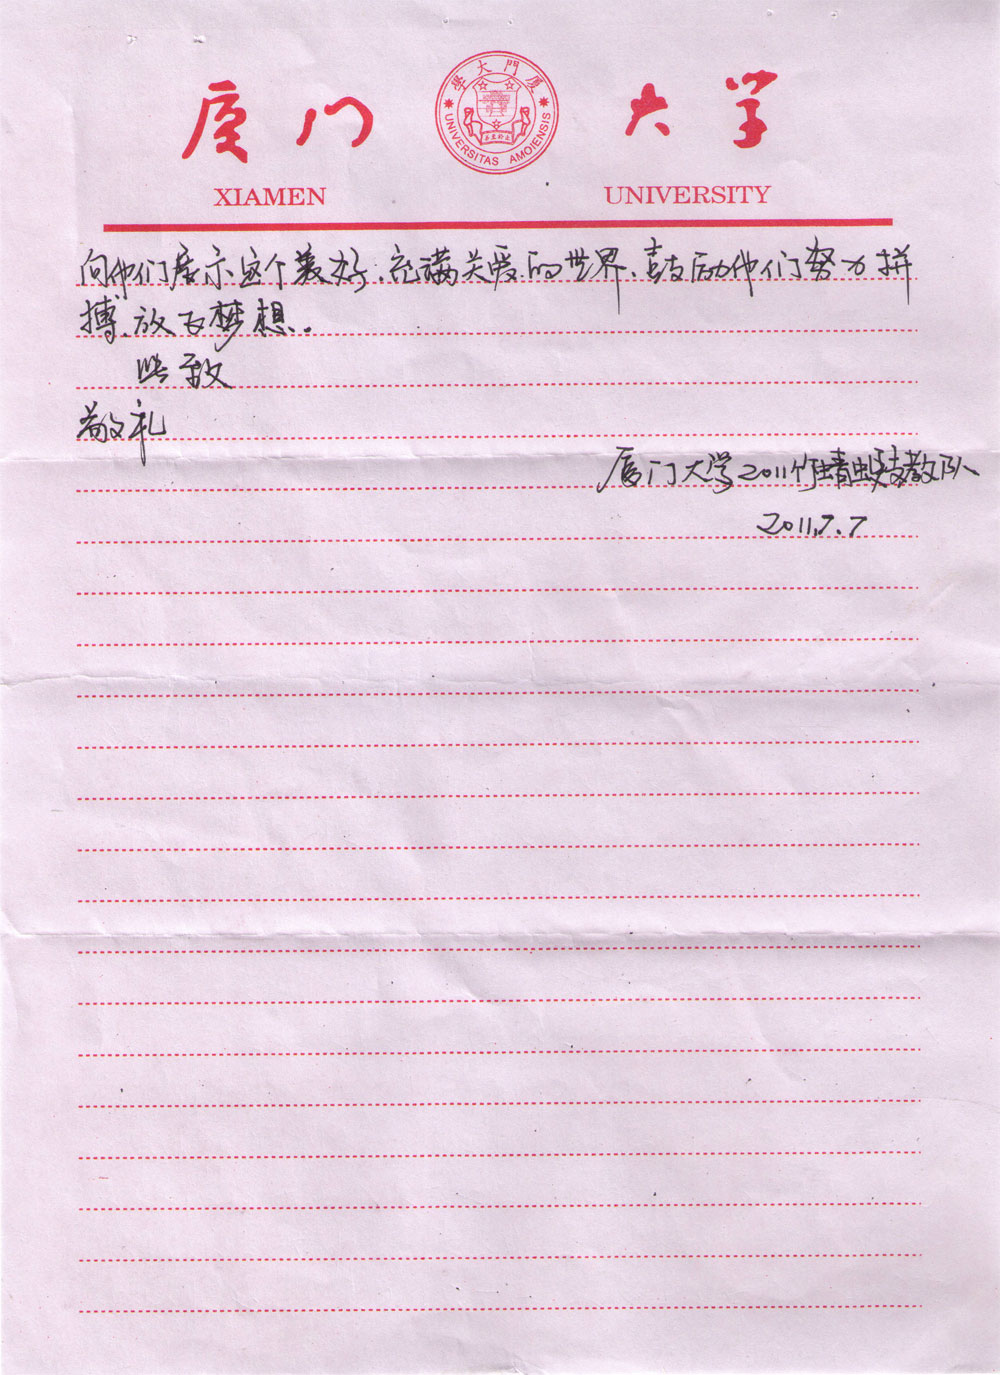 厦门大学
厦門大學
UNIVERSITAS AMOIENSIS
XIAMEN UNIVERSITY
向他们展示这个美好、充满关爱的世界、鼓励他们努力拼
搏、放飞梦想。
此致
敬礼
厦门大学2011竹蜻蜓支教队
2011.7.7